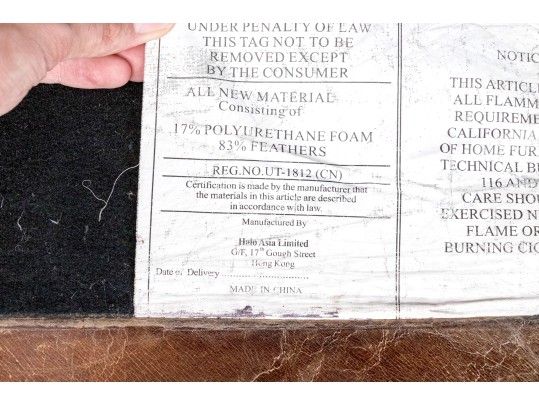 UNDER PENALTY OF LAW
THIS TAG NOT TO BE
REMOVED EXCEPT
BY THE CONSUMER
ALL NEW MATERIAL
Consisting of
17% POLYURETHANE FOAM
83% FEATHERS
REG.NO.UT-1812 (CN)
Certification is made by the manufacturer that
the materials in this article are described
in accordance with law.
Manufactured By
Halo Asia Limited
G/F, 17th Gough Street
Hong Kong
Date of Delivery ..............................
MADE IN CHINA
NOTIC
THIS ARTICL
ALL FLAMM
REQUIREME
CALIFORNIA
OF HOME FUR
TECHNICAL BU
116 AND
CARE SHOU
EXERCISED NE
FLAME OR
BURNING CIG